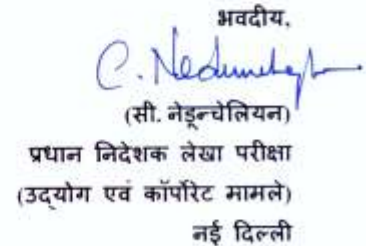 भवदीय,
C. Nedunchezhian
(सी. नेडून्चेलियन)
प्रधान निदेशक लेखा परीक्षा
(उद्योग एवं कॉर्पोरेट मामले)
नई दिल्ली